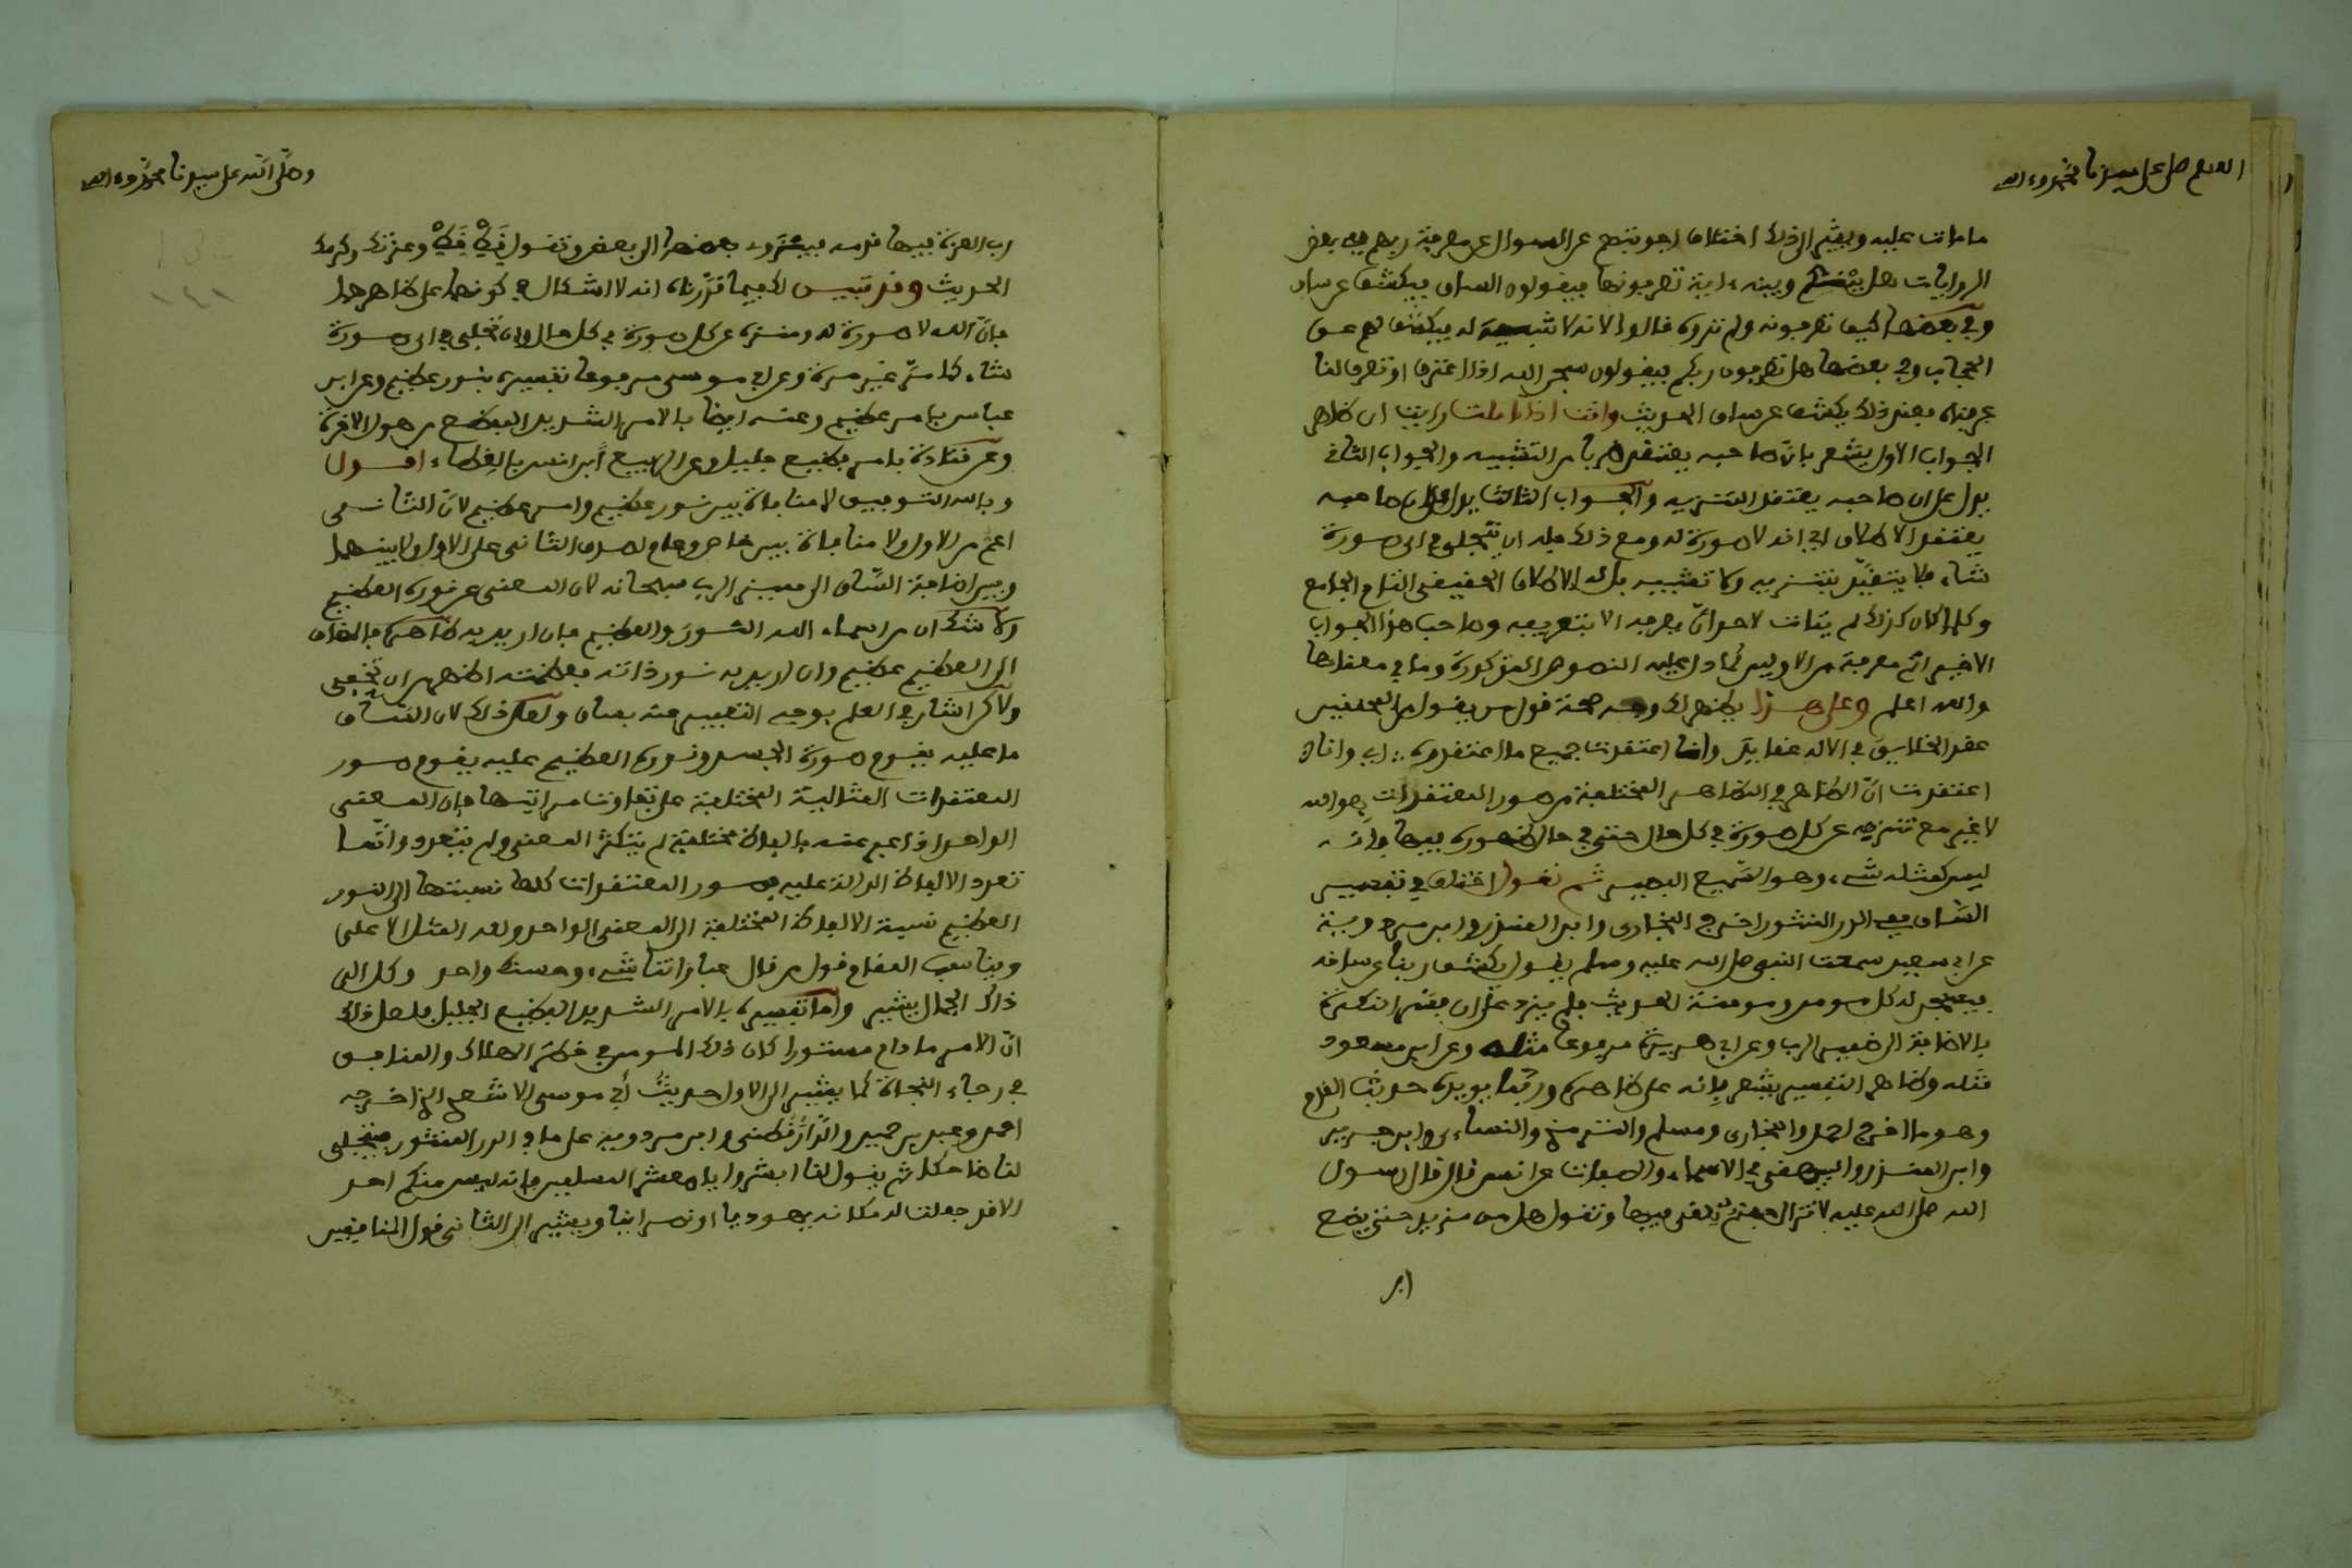 اللهم صل على سيدنا محمد وءاله
ما مات عليه ويشير الى ذلك اختلاف اجوبتهم عن السوال عن معرفة ربهم ففى بعض
الروايات هل بينكم وبينه ءاية تعرفونها فيقولون الساق فيكشف عن ساق
وفي بعضها كيف تعرفونه ولم تروه قالوا لانه لا شبيه له فيكشف لهم عن
الحجاب وفي بعضها هل تعرفون ربكم فيقولون سبحن الله اذا اعترف او تعرف لنا
عرفناه فعند ذلك يكشف عن ساق الحديث وانت اذا تاملت رايت ان ظاهر
الجواب الاول يشعر بان صاحبه يعتقد ضربا من التشبيه والجواب الثاني
يدل على ان صاحبه يعتقد التنزيه والجواب الثالث يدل على ان صاحبه
يعتقد الاطلاق اي انه لا صورة له ومع ذلك فله ان يتجلى في اى صورة
شاء فلا يتقيد بتنزيه ولا تشبيه بل له الاطلاق الحقيقي التام الجامع
وكلما كان كذلك لم يتات لاحد ان يعرفه الا بتعريفه وصاحب هذا الجواب
الاخير اتم معرفة من الاولين لما دل عليه النصوص المذكورة وما في معناها
والله اعلم وعلى هذا يظهر لك وجه صحة قول من يقول من المحققين
عقد الخلايق في الاله عقايدا وانا اعتقدت جميع ما اعتقدوه ؞ اي وانا
اعتقدت ان الظاهر في المظاهر المختلفة من صور المعتقدات هو الله
لا غير مع تنزيهه عن كل صورة في كل حال حتى في حال ظهوره فيها فانه
ليس كمثله شيء وهو السميع البصير ثم نقول اختلف في تفسير
الساق ففى الدر المنثور اخرج البخارى وابن المنذر وابن مردويه
عن ابي سعيد سمعت النبي صلى الله عليه وسلم يقول يكشف ربنا عن ساقه
فيسجد له كل مومن ومومنة الحديث فلم يزد على ان فسر النكرة
بالاضافة الى ضمير الرب وعن ابي هريرة مرفوعا مثله وعن ابن مسعود
مثله وظاهر التفسير يشعر بانه على ظاهره وربما يويده حديث القدم
وهو ما اخرج احمد والبخارى ومسلم والترمذي والنساءى وابن جرير
وابن المنذر والبيهقي في الاسماء والصفات عن انس قال قال رسول
الله صلى الله عليه لا تزال جهنم يلقى فيها وتقول هل من مزيد حتى يضع
رب
وصلى الله على سيدنا محمد وءاله
رب العزة فيها قدمه فينزوى بعضها الى بعض وتقول قط قط وعزتك وكرمك
الحديث وقد تبين لك فيما قررناه انه لا اشكال في كونهما على ظاهرهما
فان الله لا صورة له ومنزه عن كل صورة في كل حال وان تجلى في اى صورة
شاء كما مر غير مرة وعن ابي موسى مرفوعا تفسيره بنور عظيم وعن ابن
عباس بامر عظيم وعنه ايضا بالامر الشديد المفظع من هول الاخرة
وعن قتادة بامر فظيع جليل وعن الربيع ابن انس بالغطاء اقول
وبالله التوفيق لا منافاة بين نور عظيم وامر عظيم لان الثانى
اعم من الاول ولا منافاة بين خاص وعام لصدق الثانى على الاول ولا بينهما
وبين اضافة الساق الى ضمير الرب سبحانه لان المعنى عن نوره العظيم
ولا شك ان من اسماء الله النور والعظيم فان اريد به ظاهره فالمضاف
الى العظيم عظيم وان اريد به نور ذاته فعظمته اظهر من ان تخفى
ولاكن اشار في العلم بوجه التعبير عنه بساق ولعل ذلك لان الساق
ما عليه يقوم صورة الجسد ونوره العظيم عليه يقوم صور
المعتقدات المثالية المختلفة على تفاوت مراتبها فان المعنى
الواحد اذا عبر عنه بالفاظ مختلفة لم يتكثر المعنى ولم يتعدد وانما
تعدد الالفاظ الدالة عليه فصور المعتقدات كلها نسبتها الى النور
العظيم نسبة الالفاظ المختلفة الى المعنى الواحد ولله المثل الاعلى
ويناسب المقام قول من قال عباراتنا شتى وحسنك واحد وكل الى
ذاك الجمال يشير واما تفسيره بالامر الشديد الفظيع الجليل فلعل ذلك
ان الامر ما دام مستورا كان ذلك المومن في خطر الهلاك والمنافق
في رجاء النجاة كما يشير الى الاول حديث أبي موسى الاشعري الذي اخرجه
احمد وعبد بن حميد والدارقطنى وابن مردويه على ما في الدر المنثور فيتجلى
لنا ضاحكا ثم يقول لنا ابشروا يا معشر المسلمين فانه ليس منكم احد
الا قد جعلت له مكانه يهوديا او نصرانيا ويشير الى الثانى قول المنافقين